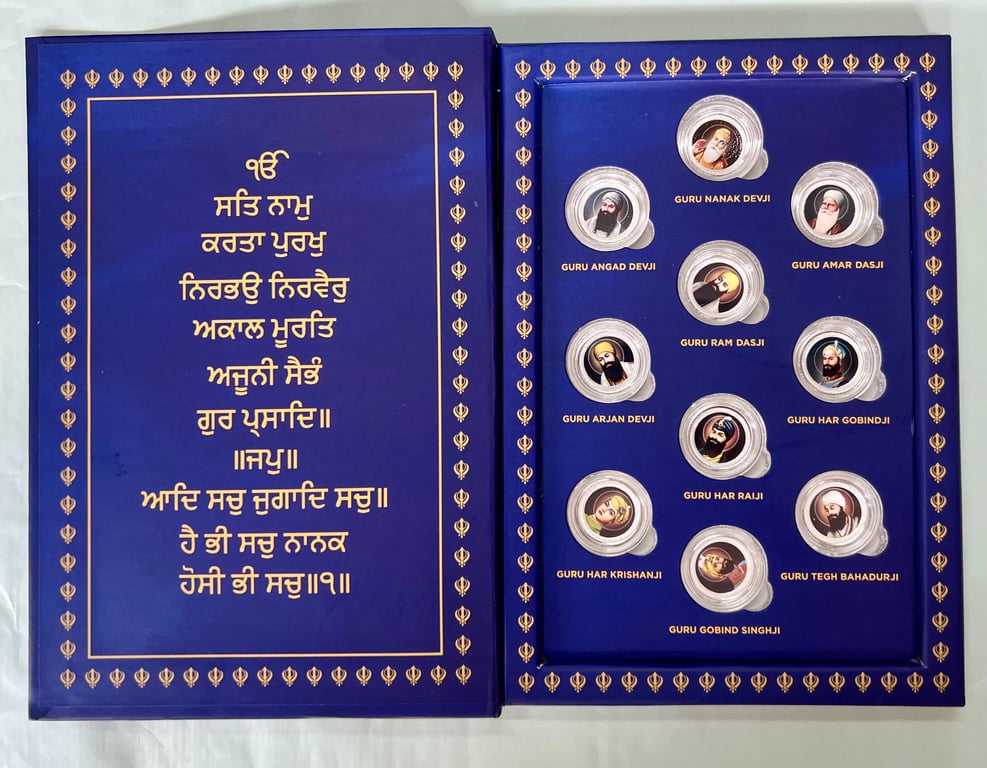 ੴ
ਸਤਿ ਨਾਮੁ
ਕਰਤਾ ਪੁਰਖੁ
ਨਿਰਭਉ ਨਿਰਵੈਰੁ
ਅਕਾਲ ਮੂਰਤਿ
ਅਜੂਨੀ ਸੈਭੰ
ਗੁਰ ਪ੍ਰਸਾਦਿ॥
॥ਜਪੁ॥
ਆਦਿ ਸਚੁ ਜੁਗਾਦਿ ਸਚੁ॥
ਹੈ ਭੀ ਸਚੁ ਨਾਨਕ
ਹੋਸੀ ਭੀ ਸਚੁ॥੧॥
GURU NANAK DEVJI
GURU ANGAD DEVJI
GURU AMAR DASJI
GURU RAM DASJI
GURU ARJAN DEVJI
GURU HAR GOBINDJI
GURU HAR RAIJI
GURU HAR KRISHANJI
GURU TEGH BAHADURJI
GURU GOBIND SINGHJI